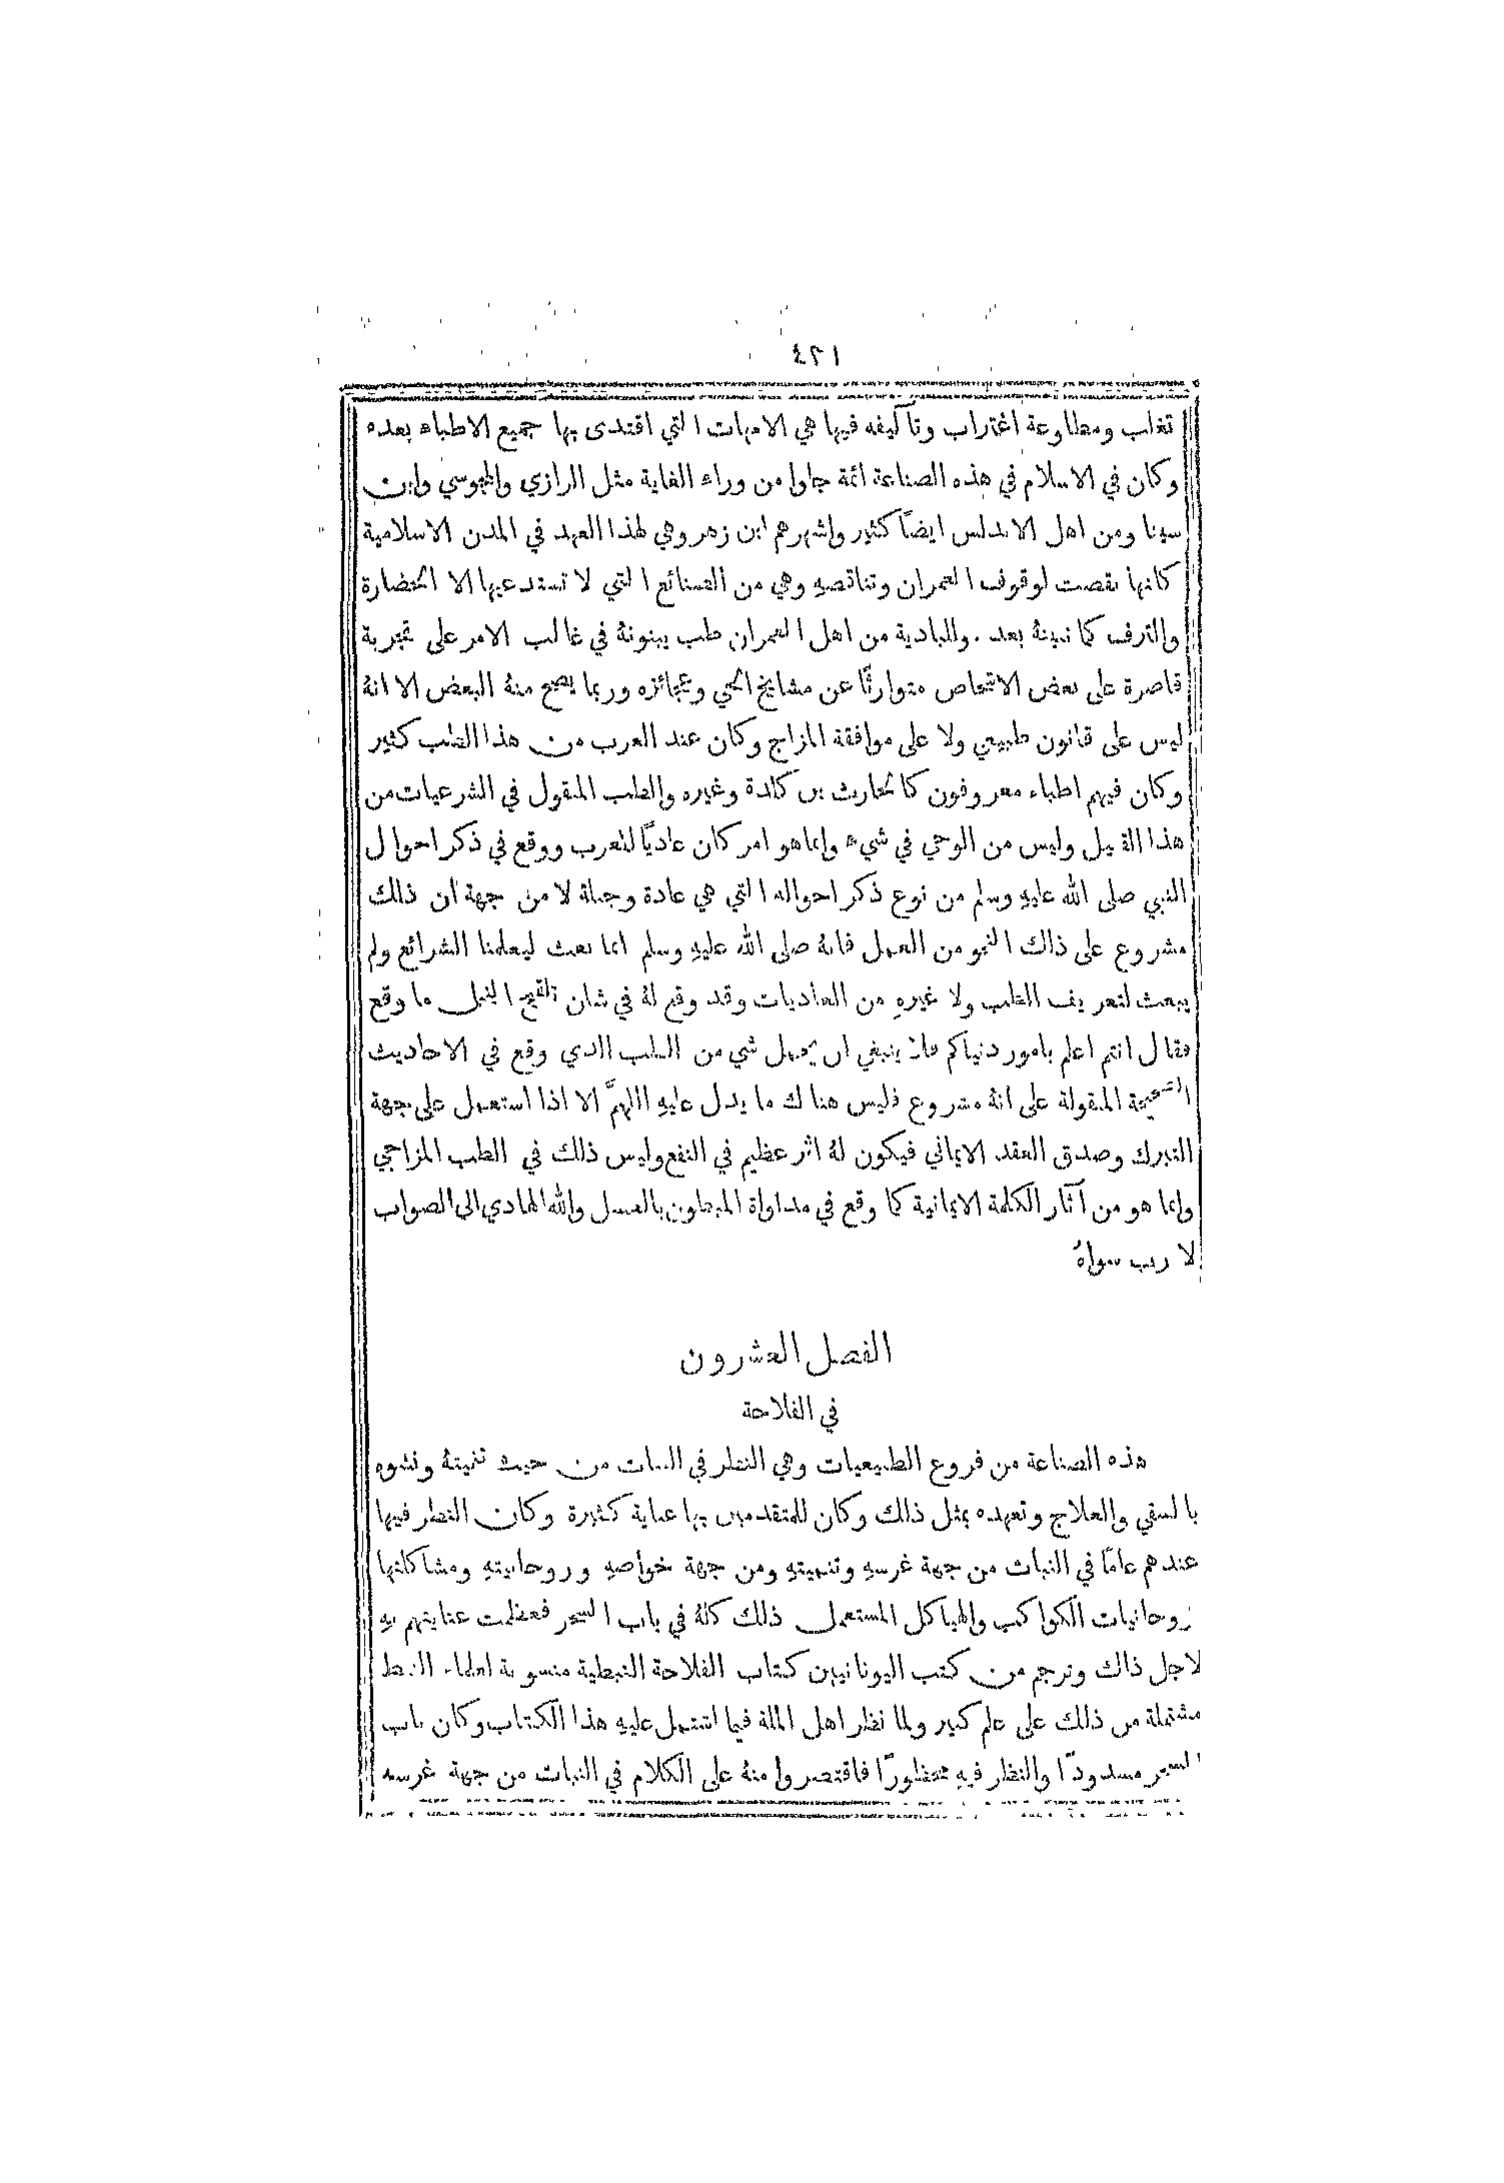 ٤٣١
تغلب ومطاوعة اغتراب وتآليفه فيها هي الامهات التي اقتدى بها جميع الاطباء بعده
وكان في الاسلام في هذه الصناعة ائمة جاوا من وراء الغاية مثل الرازي والمجوسي وابن
سينا ومن اهل الاندلس ايضًا كثير واشهرهم ابن زهر وهي لهذا العهد في المدن الاسلامية
كانها نقصت لوقوف العمران وتناقصهِ وهي من الصنائع التي لا تستدعيها الا الحضارة
والترف كما نبينهُ بعد . وللبادية من اهل العمران طب يبنونهُ في غالب الامر على تجربة
قاصرة على بعض الاشخاص متوارثًا عن مشايخ الحي وعجائزه وربما يصح منهُ البعض الا انهُ
ليس على قانون طبيعي ولا على موافقة المزاج وكان عند العرب من هذا الطب كثير
وكان فيهم اطباء معروفون كالحارث بن كلدة وغيره والطب المنقول في الشرعيات من
هذا القبيل وليس من الوحي في شيء وانما هو امر كان عاديًّا للعرب ووقع في ذكر احوال
النبي صلى الله عليهِ وسلم من نوع ذكر احواله التي هي عادة وجبلة لا من جهة أن ذلك
مشروع على ذلك النحو من العمل فانهُ صلى الله عليهِ وسلم انما بعث ليعلمنا الشرائع ولم
يبعث لتعريف الطب ولا غيرهِ من العاديات وقد وقع لهُ في شان تلقيح النخل ما وقع
فقال انتم اعلم بامور دنياكم فلا ينبغي ان يحمل شي من الطب الذي وقع في الاحاديث
الصحيحة المنقولة على انهُ مشروع فليس هناك ما يدل عليهِ اللهمَّ الا اذا استعمل على جهة
التبرك وصدق العقد الايماني فيكون لهُ اثر عظيم في النفع وليس ذلك في الطب المزاجي
وانما هو من آثار الكلمة الايمانية كما وقع في مداواة المبطون بالعسل والله الهادي الى الصواب
لا رب سواهُ
الفصل العشرون
في الفلاحة
هذه الصناعة من فروع الطبيعيات وهي النظر في النبات من حيث تنميتهُ ونشوه
بالسقي والعلاج وتعهده بمثل ذلك وكان للمتقدمين بها عناية كثيرة وكان النظر فيها
عندهم عامًا في النبات من جهة غرسهِ وتنميتهِ ومن جهة خواصهِ وروحانيتهِ ومشاكلتها
لروحانيات الكواكب والهياكل المستعمل ذلك كلهُ في باب السحر فعظمت عنايتهم بهِ
لاجل ذلك وترجم من كتب اليونانيين كتاب الفلاحة النبطية منسوبة لعلماء النبط
مشتملة من ذلك على علم كبير ولما نظر اهل الملة فيما اشتمل عليهِ هذا الكتاب وكان باب
السحر مسدودًا والنظر فيهِ محظورًا فاقتصروا منهُ على الكلام في النبات من جهة غرسه